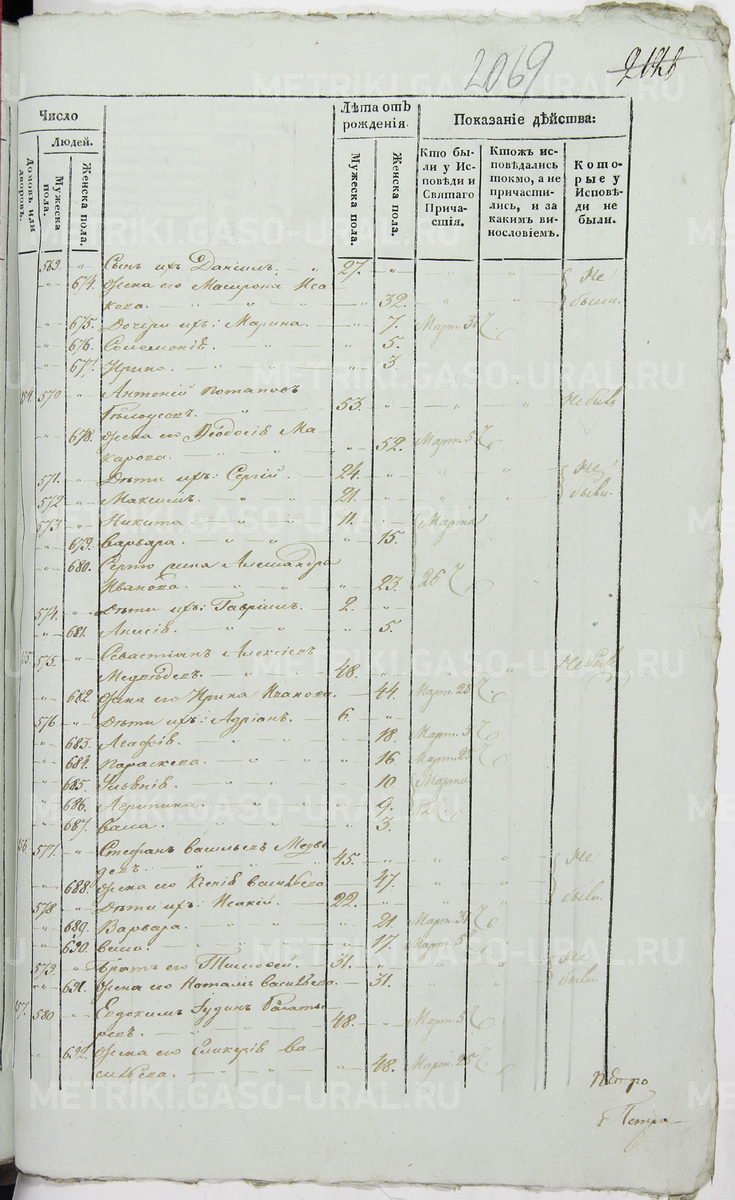 2069
Число
Людей.
Домовъ или дворовъ.
Мужеска пола.
Женска пола.
Лѣта отъ рожденія.
Мужеска пола.
Женска пола.
Показаніе дѣйства:
Кто были у Исповѣди и Святаго Причастія.
Ктожъ исповѣдались токмо, а не причастились, и за какимъ винословіемъ.
Которые у Исповѣди не были.
569. Сынъ ихъ Даніилъ. 27. Не
674. Жена его Матрона Иса
кова. 32. были.
675. Дочери ихъ: Марина. 7. Март. 5
676. Соломонія. 5.
677. Ирина. 3.
570 Антоній Потаповъ
53. Не былъ
678. Жена его Ѳеодосія Ма
карова. 52. Март. 5
571. Дѣти ихъ: Сергій. 24. Не
572 Максимъ. 21. были.
573 Никита 11. Марта
679. Варвара. 15.
680. Александра
Иванова. 23. 26
574. Дѣти ихъ: Гавріилъ. 2.
681. Анисія. 5.
575. Севастіанъ Алексѣевъ
Медвѣдевъ. 48. Не былъ
682. Жена его Ирина Иванова. 44. Март. 25
576. Дѣти ихъ: Адріанъ. 6.
683. Агафія. 18. Март. 5
684. Параскева. 16. Март. 25
685. 10. Марта
686. Агрипина. 9. 12
687. 3.
577. Стефанъ Васильевъ Медвѣ
девъ. 45. Не
688. Жена его Ксенія Васильева 47.
578 Дѣти ихъ: Исакій. 22. были.
689. Варвара. 21. Март.
690. 17. Март. 5
579. Братъ его Тимоѳей. 31. Не
691. Жена его Наталья Васильева. 31. были.
580 Евдокимъ Іудинъ
48. Март. 5
692. Жена его Гликерія Ва
сильева. 48. Март. 25
Петра
METRIKI.GASO-URAL.RU